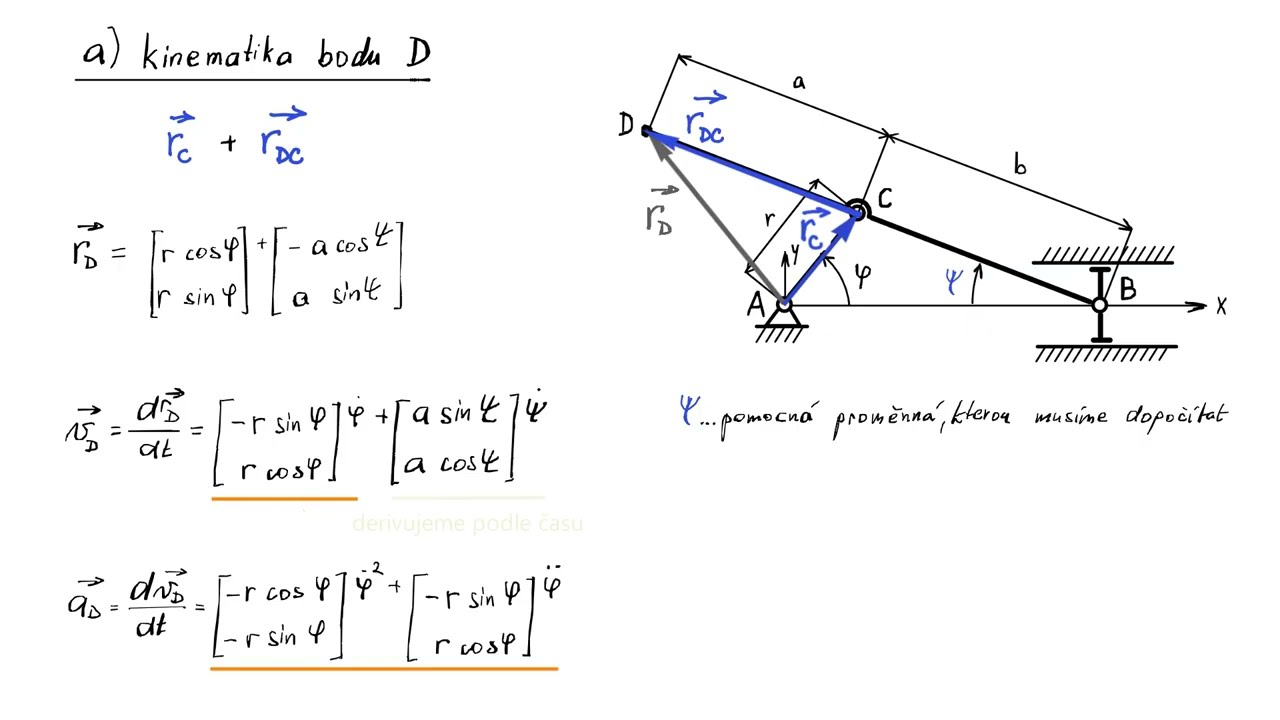 a) kinematika bodu D
r_C + r_DC
r_D = [r cosφ; r sinφ] + [- a cosψ; a sinψ]
v_D = dr_D/dt = [-r sin φ; r cosφ] φ̇ + [a sin ψ; a cosψ] ψ̇
derivujeme podle času
a_D = dv_D/dt = [-r cos φ; -r sin φ] φ̇² + [-r sin φ; r cosφ] φ̈
a
D
r_DC
b
C
r
r_C
r_D
y
φ
ψ
A
B
x
ψ...pomocná proměnná, kterou musíme dopočítat